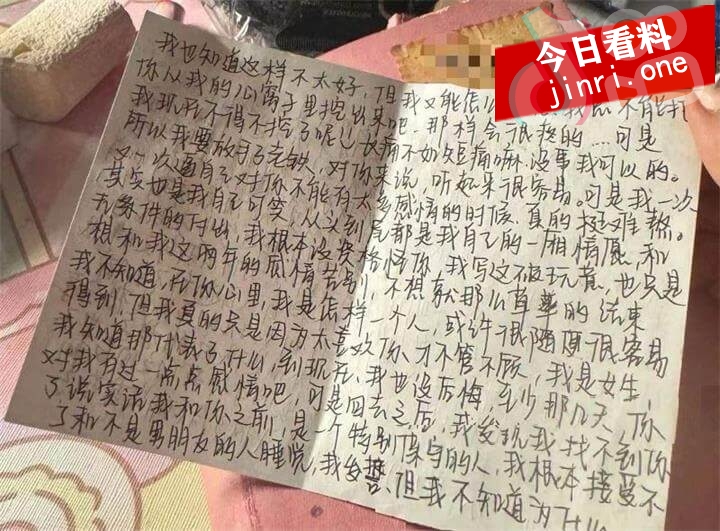 今日看料
jinri.one
我也知道这样不太好,但我又能怎么我总不能把
你从我的心窝子里挖出来吧,那样会很疼的....可是
我现在不得不挖了呢,长痛不如短痛嘛,没事我可以的。
所以我要放手了老铁,对你来说,听起来很容易。可是我一次
又一次逼自己对你不能有太多感情的时候,真的挺难熬。
其实也是我自己可笑,从头到尾都是我自己的一厢情愿,和
无条件的付出,我根本没资格怪你,我写这破玩意,也只是
想和我这两年的感情告别,不想就那么草草的结束
我不知道,在你心里,我是怎样一个人,或许很随便很容易
得到,但我真的只是因为太喜欢你才不管不顾,我是女生,
我知道那代表了什么,到现在,我也没后悔,至少那几天你
对我有过一点点感情吧,可是回去之后,我发现我找不到你
了说实话我和你之前,是一个特别保守的人,我根本接受不
了和不是男朋友的人睡觉,我发誓,但我不知道为什么